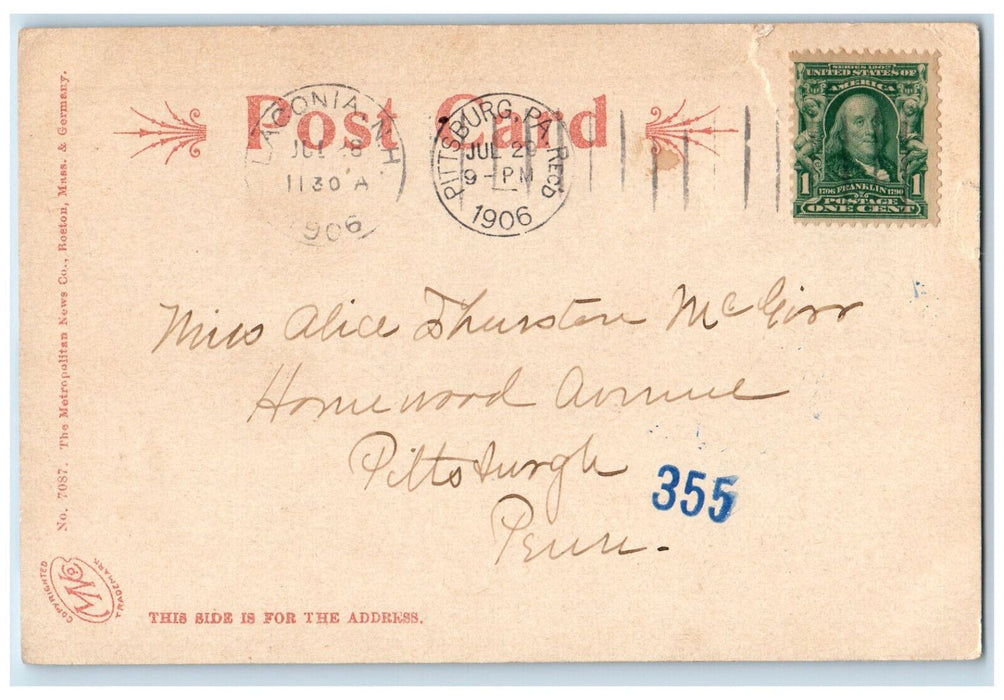 Post Card
LACONIA, N.H
JUL 28
1130 A
1906
PITTSBURG, PA. REC'D
JUL 29
9 - PM
1906
SERIES 1902
UNITED STATES OF
AMERICA
1 1706 FRANKLIN 1790 1
POSTAGE
ONE CENT
Miss Alice Thurston McGirr
Homewood Avenue
Pittsburgh
Penn.
355
No. 7087. The Metropolitan News Co., Boston, Mass. & Germany.
COPYRIGHTED
MN Co
TRADEMARK
THIS SIDE IS FOR THE ADDRESS.